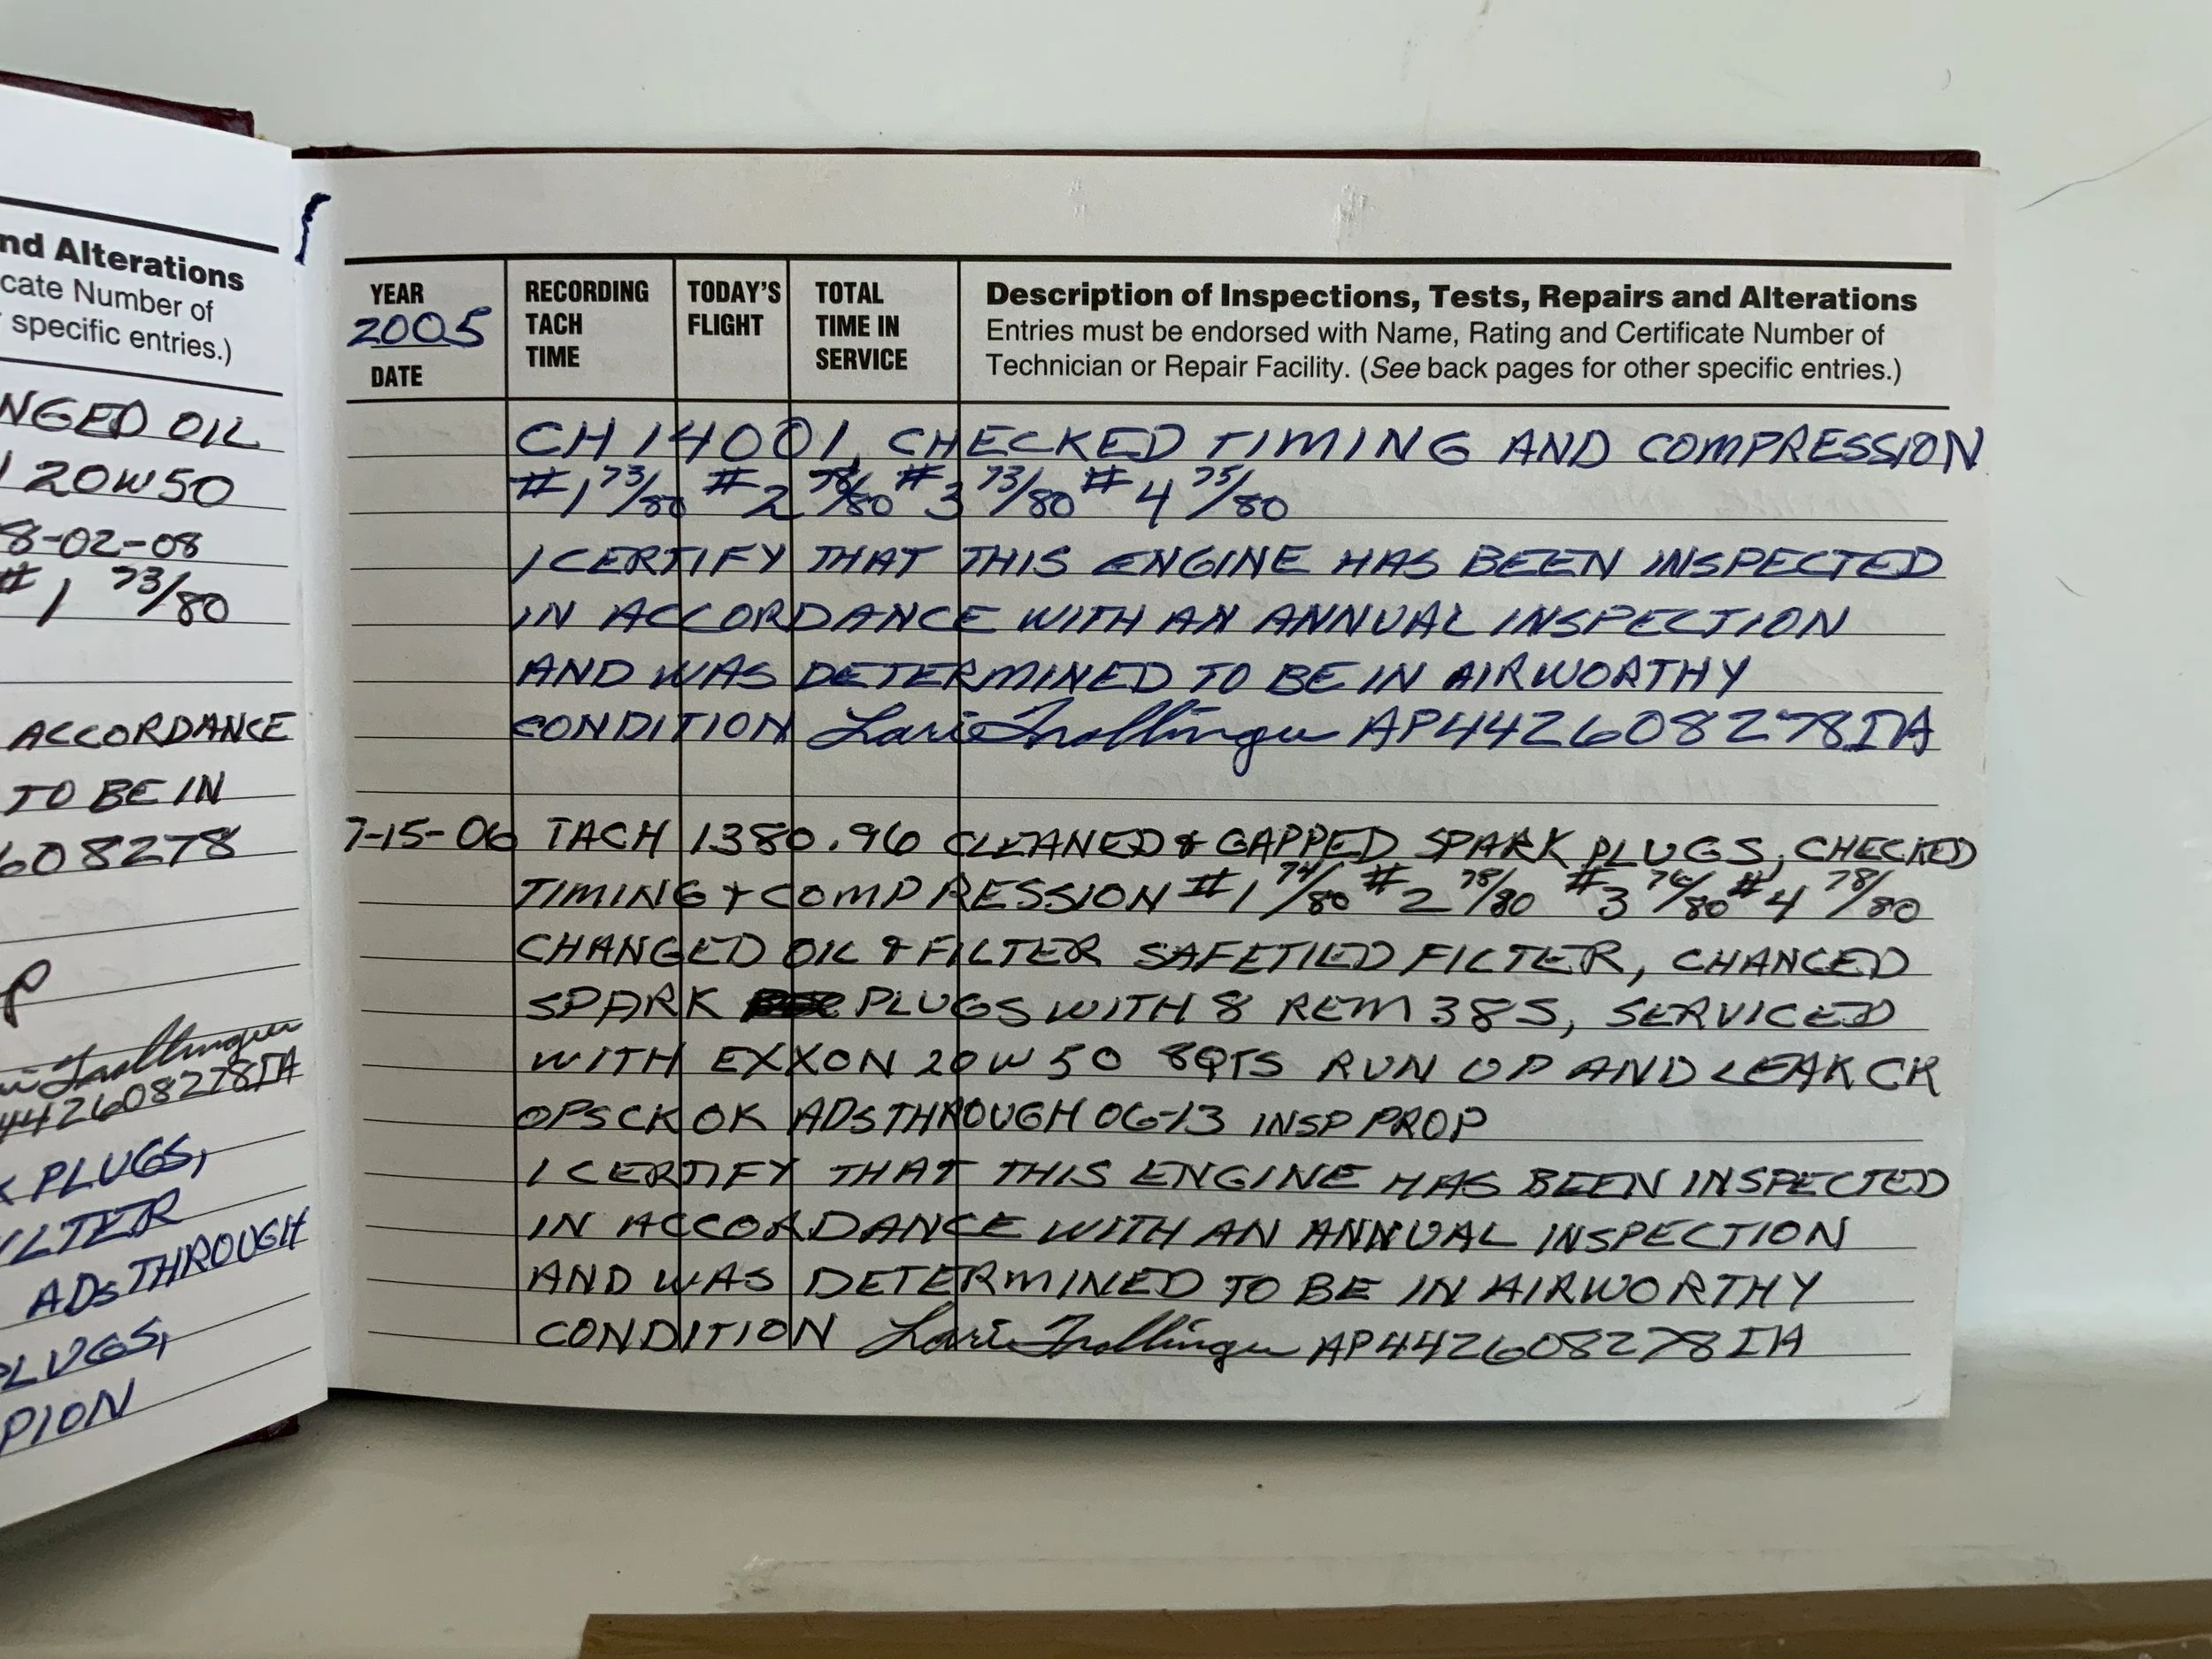 nd Alterations
cate Number of
specific entries.)
NGED OIL
20W50
8-02-08
#1 73/80
ACCORDANCE
TO BE IN
608278
442608278IA
PLUGS,
LTER
ADS THROUGH
PLUGS,
PION
YEAR
2005
DATE
RECORDING
TACH
TIME
TODAY'S
FLIGHT
TOTAL
TIME IN
SERVICE
Description of Inspections, Tests, Repairs and Alterations
Entries must be endorsed with Name, Rating and Certificate Number of
Technician or Repair Facility. (See back pages for other specific entries.)
CH14001, CHECKED TIMING AND COMPRESSION
#1 73/80 #2 78/80 #3 73/80 #4 75/80
I CERTIFY THAT THIS ENGINE HAS BEEN INSPECTED
IN ACCORDANCE WITH AN ANNUAL INSPECTION
AND WAS DETERMINED TO BE IN AIRWORTHY
CONDITION AP442608278IA
7-15-06 TACH 1380.96 CLEANED & GAPPED SPARK PLUGS, CHECKED
TIMING + COMPRESSION #1 74/80 #2 78/80 #3 76/80 #4 78/80
CHANGED OIL & FILTER SAFETIED FILTER, CHANGED
SPARK PLUGS WITH 8 REM 38S, SERVICED
WITH EXXON 20W50 8QTS RUN UP AND LEAK CK
OPS CK OK ADS THROUGH 06-13 INSP PROP
I CERTIFY THAT THIS ENGINE HAS BEEN INSPECTED
IN ACCORDANCE WITH AN ANNUAL INSPECTION
AND WAS DETERMINED TO BE IN AIRWORTHY
CONDITION AP442608278IA